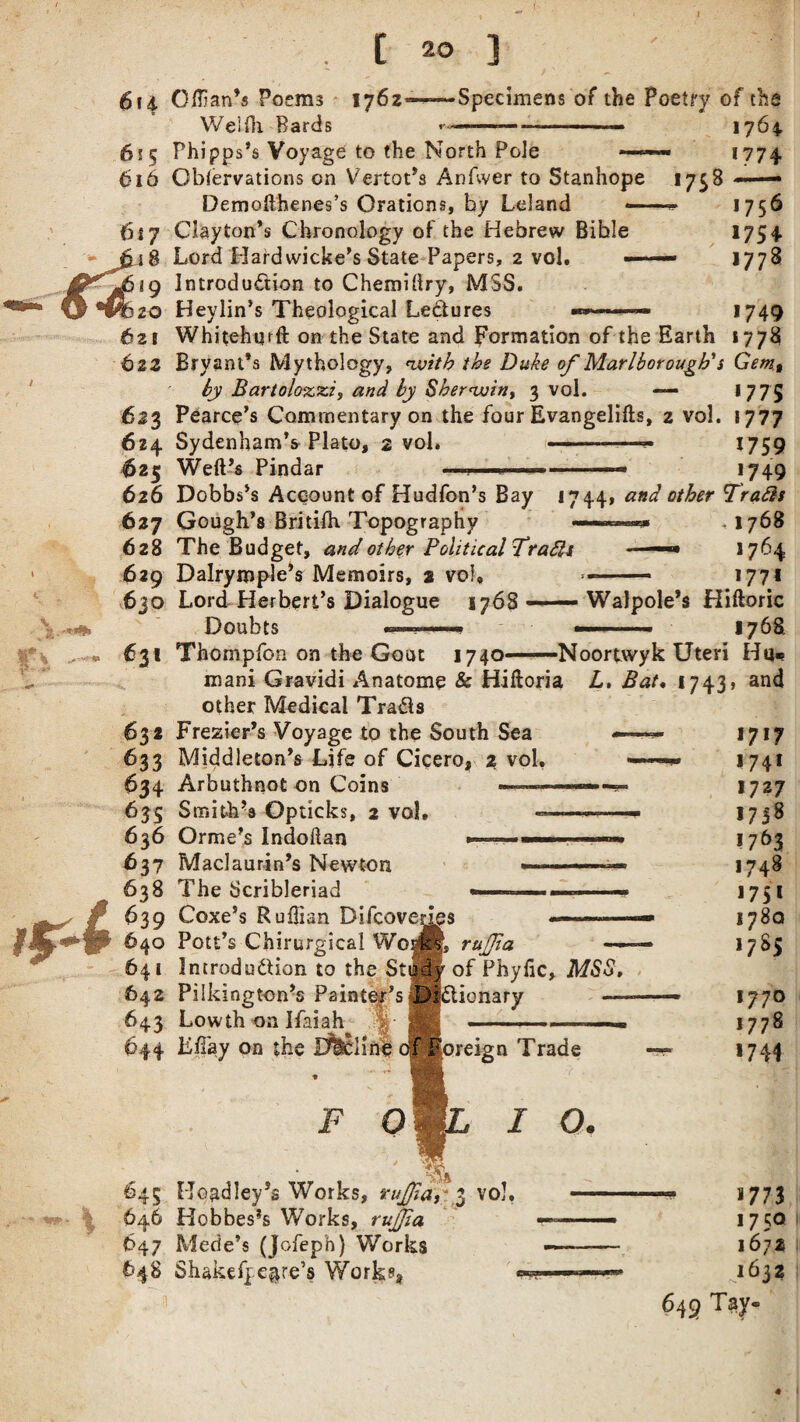 [ 20 ]
614 Oſſian's Poems 1762——Specimens of the Poetry of the
Welſh Bards —— 1764
615 Phipps's Voyage to the North Pole —— 1774
616 Obſervations on Vertot's Anſwer to Stanhope 1758 ——
Demoſthenes's Orations, by Leland —— 1756
617 Clayton's Chronology of the Hebrew Bible 1754
618 Lord Hardwicke's State Papers, 2 vol. —— 1778
619 Introduction to Chemiſtry, MSS.
620 Heylin's Theological Lectures —— 1749
621 Whitehurſt on the State and Formation of the Earth 1778
622 Bryant's Mythology, with the Duke of Marlborough's Gem,
by Bartolozzi, and by Sherwin, 3 vol. — 1775
623 Pearce's Commentary on the four Evangeliſts, 2 vol. 1777
624 Sydenham's Plato, 2 vol. —— 1759
625 Weſt's Pindar —— 1749
626 Dobbs's Account of Hudſon's Bay 1744, and other Tracts
627 Gough's Britiſh Topography —— 1768
628 The Budget, and other Political Tracts —— 1764
629 Dalrymple's Memoirs, 2 vol. —— 1771
630 Lord Herbert's Dialogue 1768 —— Walpole's Hiſtoric
Doubts —— —— 1768
631 Thompſon on the Gout 1740——Noortwyk Uteri Hu-
mani Gravidi Anatome & Hiſtoria L. Bat. 1743, and
other Medical Tracts
632 Frezier's Voyage to the South Sea —— 1717
633 Middleton's Life of Cicero, 2 vol. —— 1741
634 Arbuthnot on Coins —— 1727
635 Smith's Opticks, 2 vol. —— 1738
636 Orme's Indoſtan —— 1763
637 Maclaurin's Newton —— 1748
638 The Scribleriad —— 1751
639 Coxe's Ruſſian Diſcoveries —— 1780
640 Pott's Chirurgical Works, ruſſia —— 1785
641 Introduction to the Study of Phyſic, MSS.
642 Pilkington's Painter's Dictionary —— 1770
643 Lowth on Iſaiah —— 1778
644 Eſſay on the Decline of Foreign Trade — 1744
FOLIO.
645 Hoadley's Works, ruſſia, 3 vol. —— 1773
646 Hobbes's Works, ruſſia —— 1750
647 Mede's (Joſeph) Works —— 1672
648 Shakeſpeare's Works, —— 1632
649 Tay-